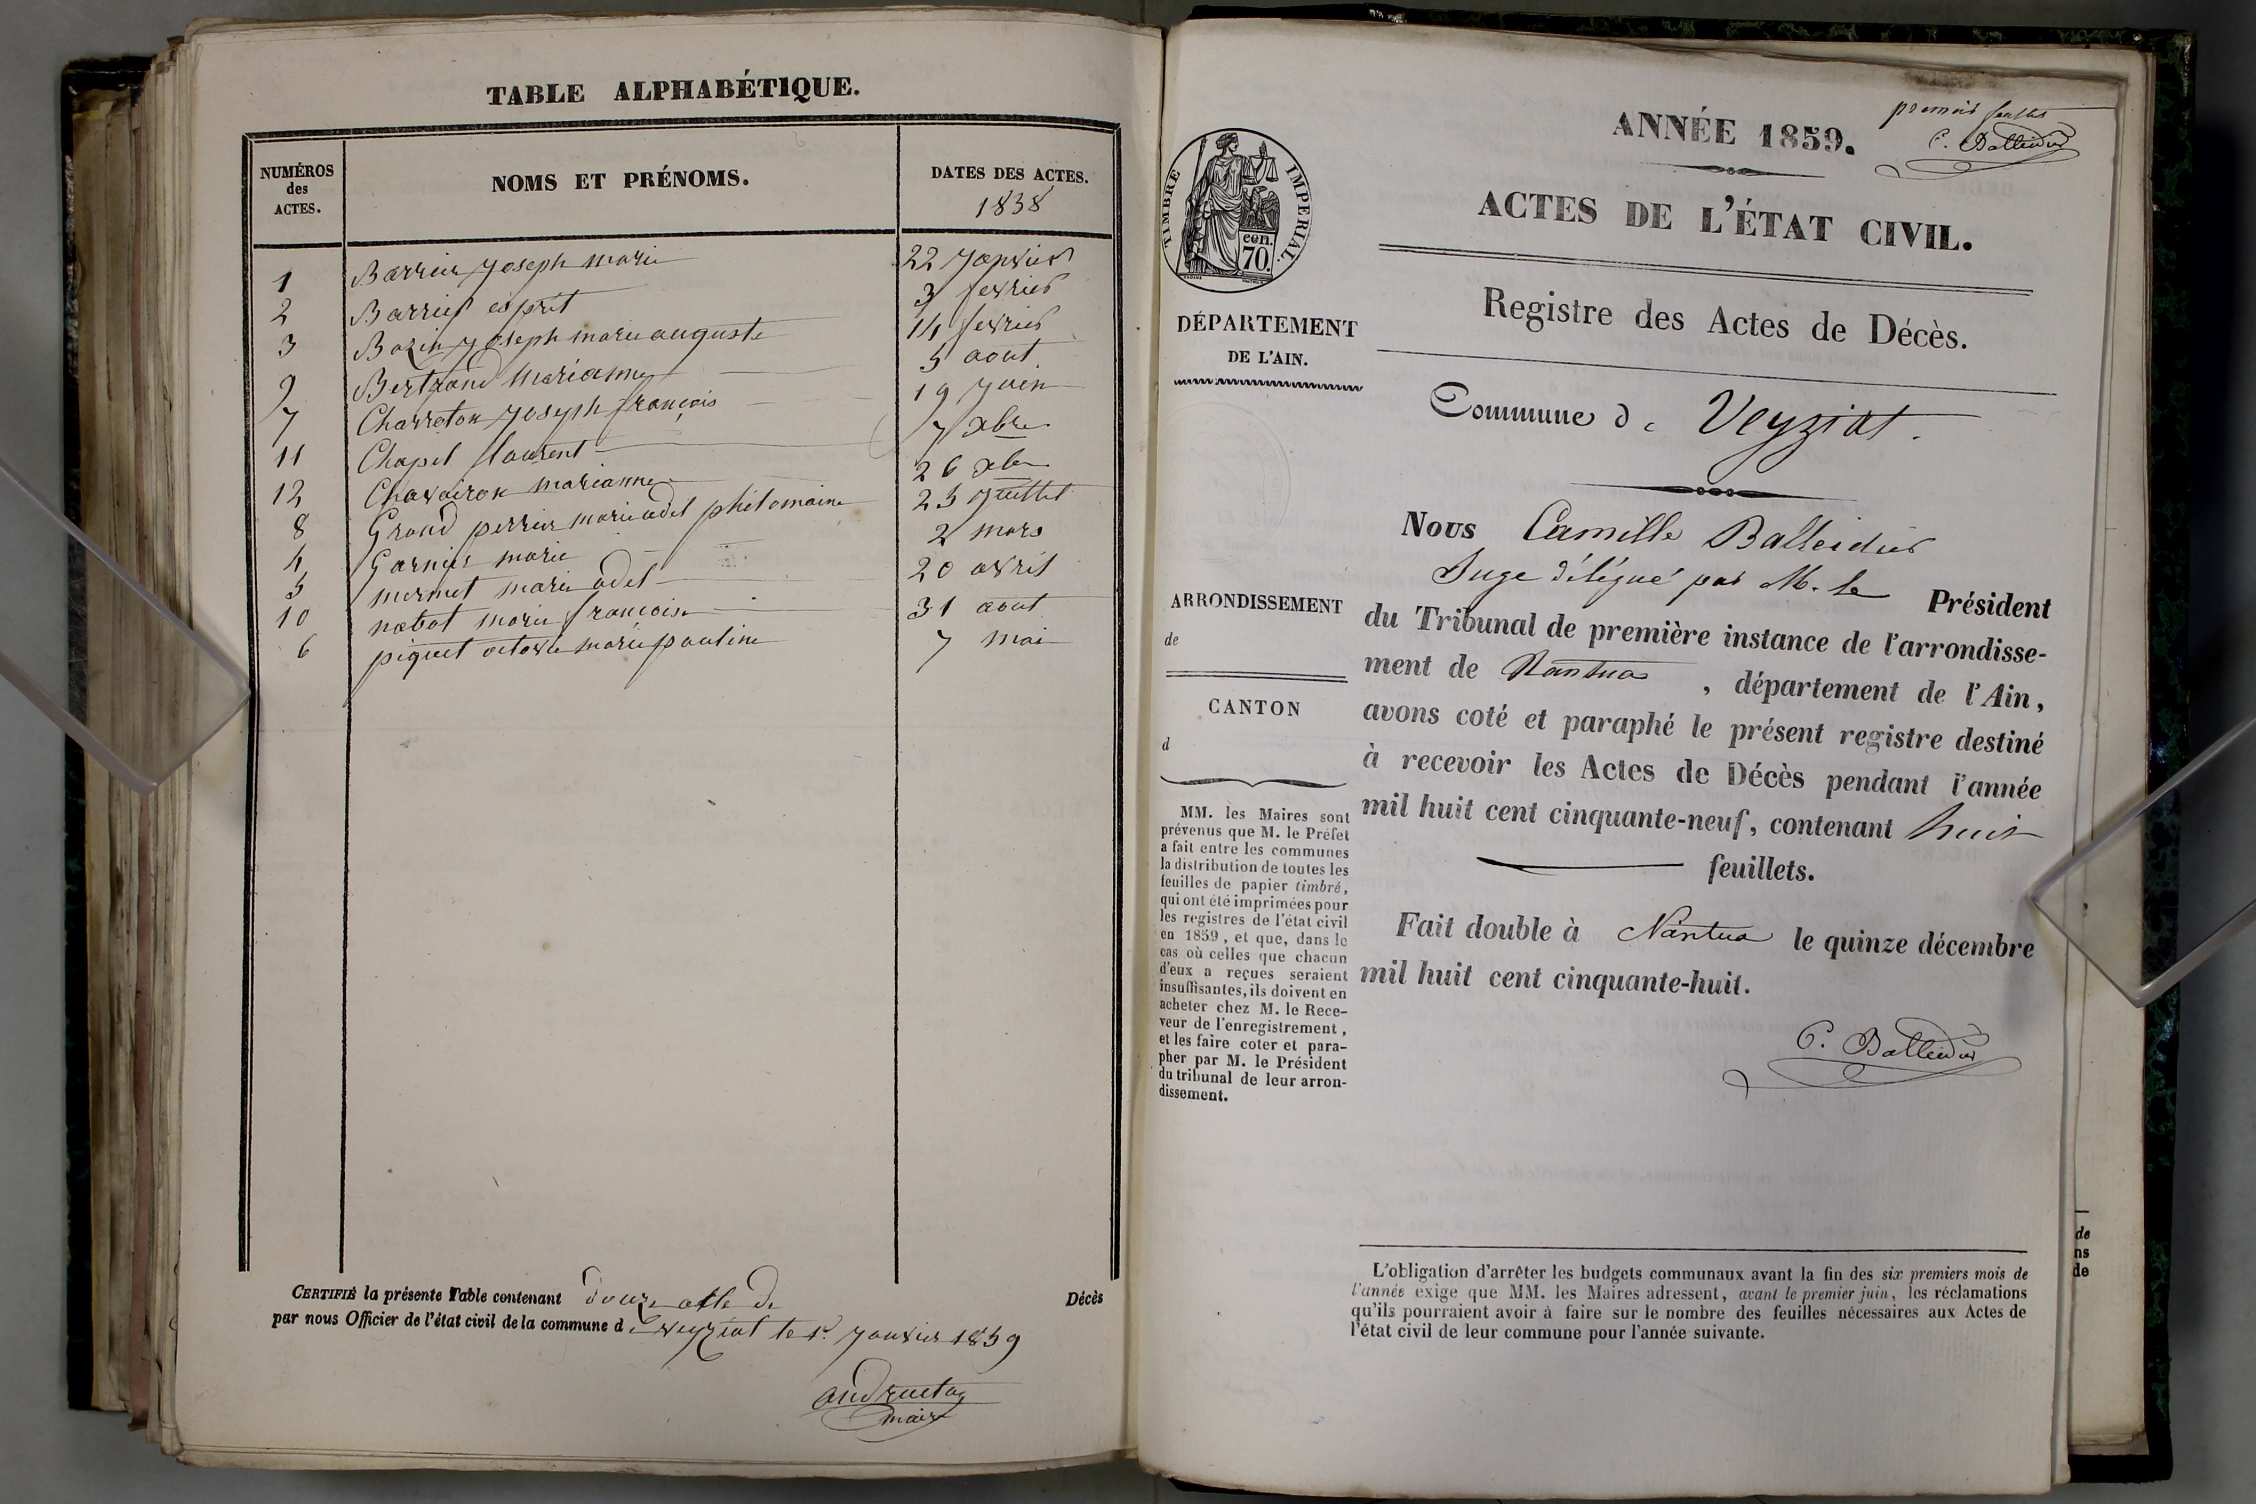 TABLE ALPHABÉTIQUE.
NUMÉROS
des
ACTES.
NOMS ET PRÉNOMS.
DATES DES ACTES.
1858
1 Barrier Joseph marie 22 Janvier
2 Barrier esprit 3 fevrier
3 Bozin Joseph marie auguste 11 fevrier
9 Bertrand Marianne 5 aout
7 Charreton Joseph françois 19 Juin
11 Chapel laurent 7 xbre
12 Chavairon marianne 26 xbre
8 Grand perrier marie adel philomaine 25 Juillet
4 Garnier marie 2 mars
5 mermet marie adel 20 avril
10 nabot marie francoise 31 aout
6 piquet octavie marie pauline 7 mai
CERTIFIÉ la présente Table contenant douze acte de Décès
par nous Officier de l'état civil de la commune de veyziat le 1er Janvier 1859
maire
premier feuillet
C. Balleidier
ANNÉE 1859.
TIMBRE IMPERIAL.
cen.
70.
ACTES DE L'ÉTAT CIVIL.
Registre des Actes de Décès.
DÉPARTEMENT
DE L'AIN.
Commune de Veyziat.
Nous Camille Balleidier
Juge délégué par M. le Président
du Tribunal de première instance de l'arrondisse-
ment de Nantua, département de l'Ain,
avons coté et paraphé le présent registre destiné
à recevoir les Actes de Décès pendant l'année
mil huit cent cinquante-neuf, contenant huit
feuillets.
Fait double à Nantua le quinze décembre
mil huit cent cinquante-huit.
C. Balleidier
ARRONDISSEMENT
de
CANTON
d
MM. les Maires sont
prévenus que M. le Préfet
a fait entre les communes
la distribution de toutes les
feuilles de papier timbré,
qui ont été imprimées pour
les registres de l'état civil
en 1859, et que, dans le
cas où celles que chacun
d'eux a reçues seraient
insuffisantes, ils doivent en
acheter chez M. le Rece-
veur de l'enregistrement,
et les faire coter et para-
pher par M. le Président
du tribunal de leur arron-
dissement.
L'obligation d'arrêter les budgets communaux avant la fin des six premiers mois de
l'année exige que MM. les Maires adressent, avant le premier juin, les réclamations
qu'ils pourraient avoir à faire sur le nombre des feuilles nécessaires aux Actes de
l'état civil de leur commune pour l'année suivante.
de
ns
de